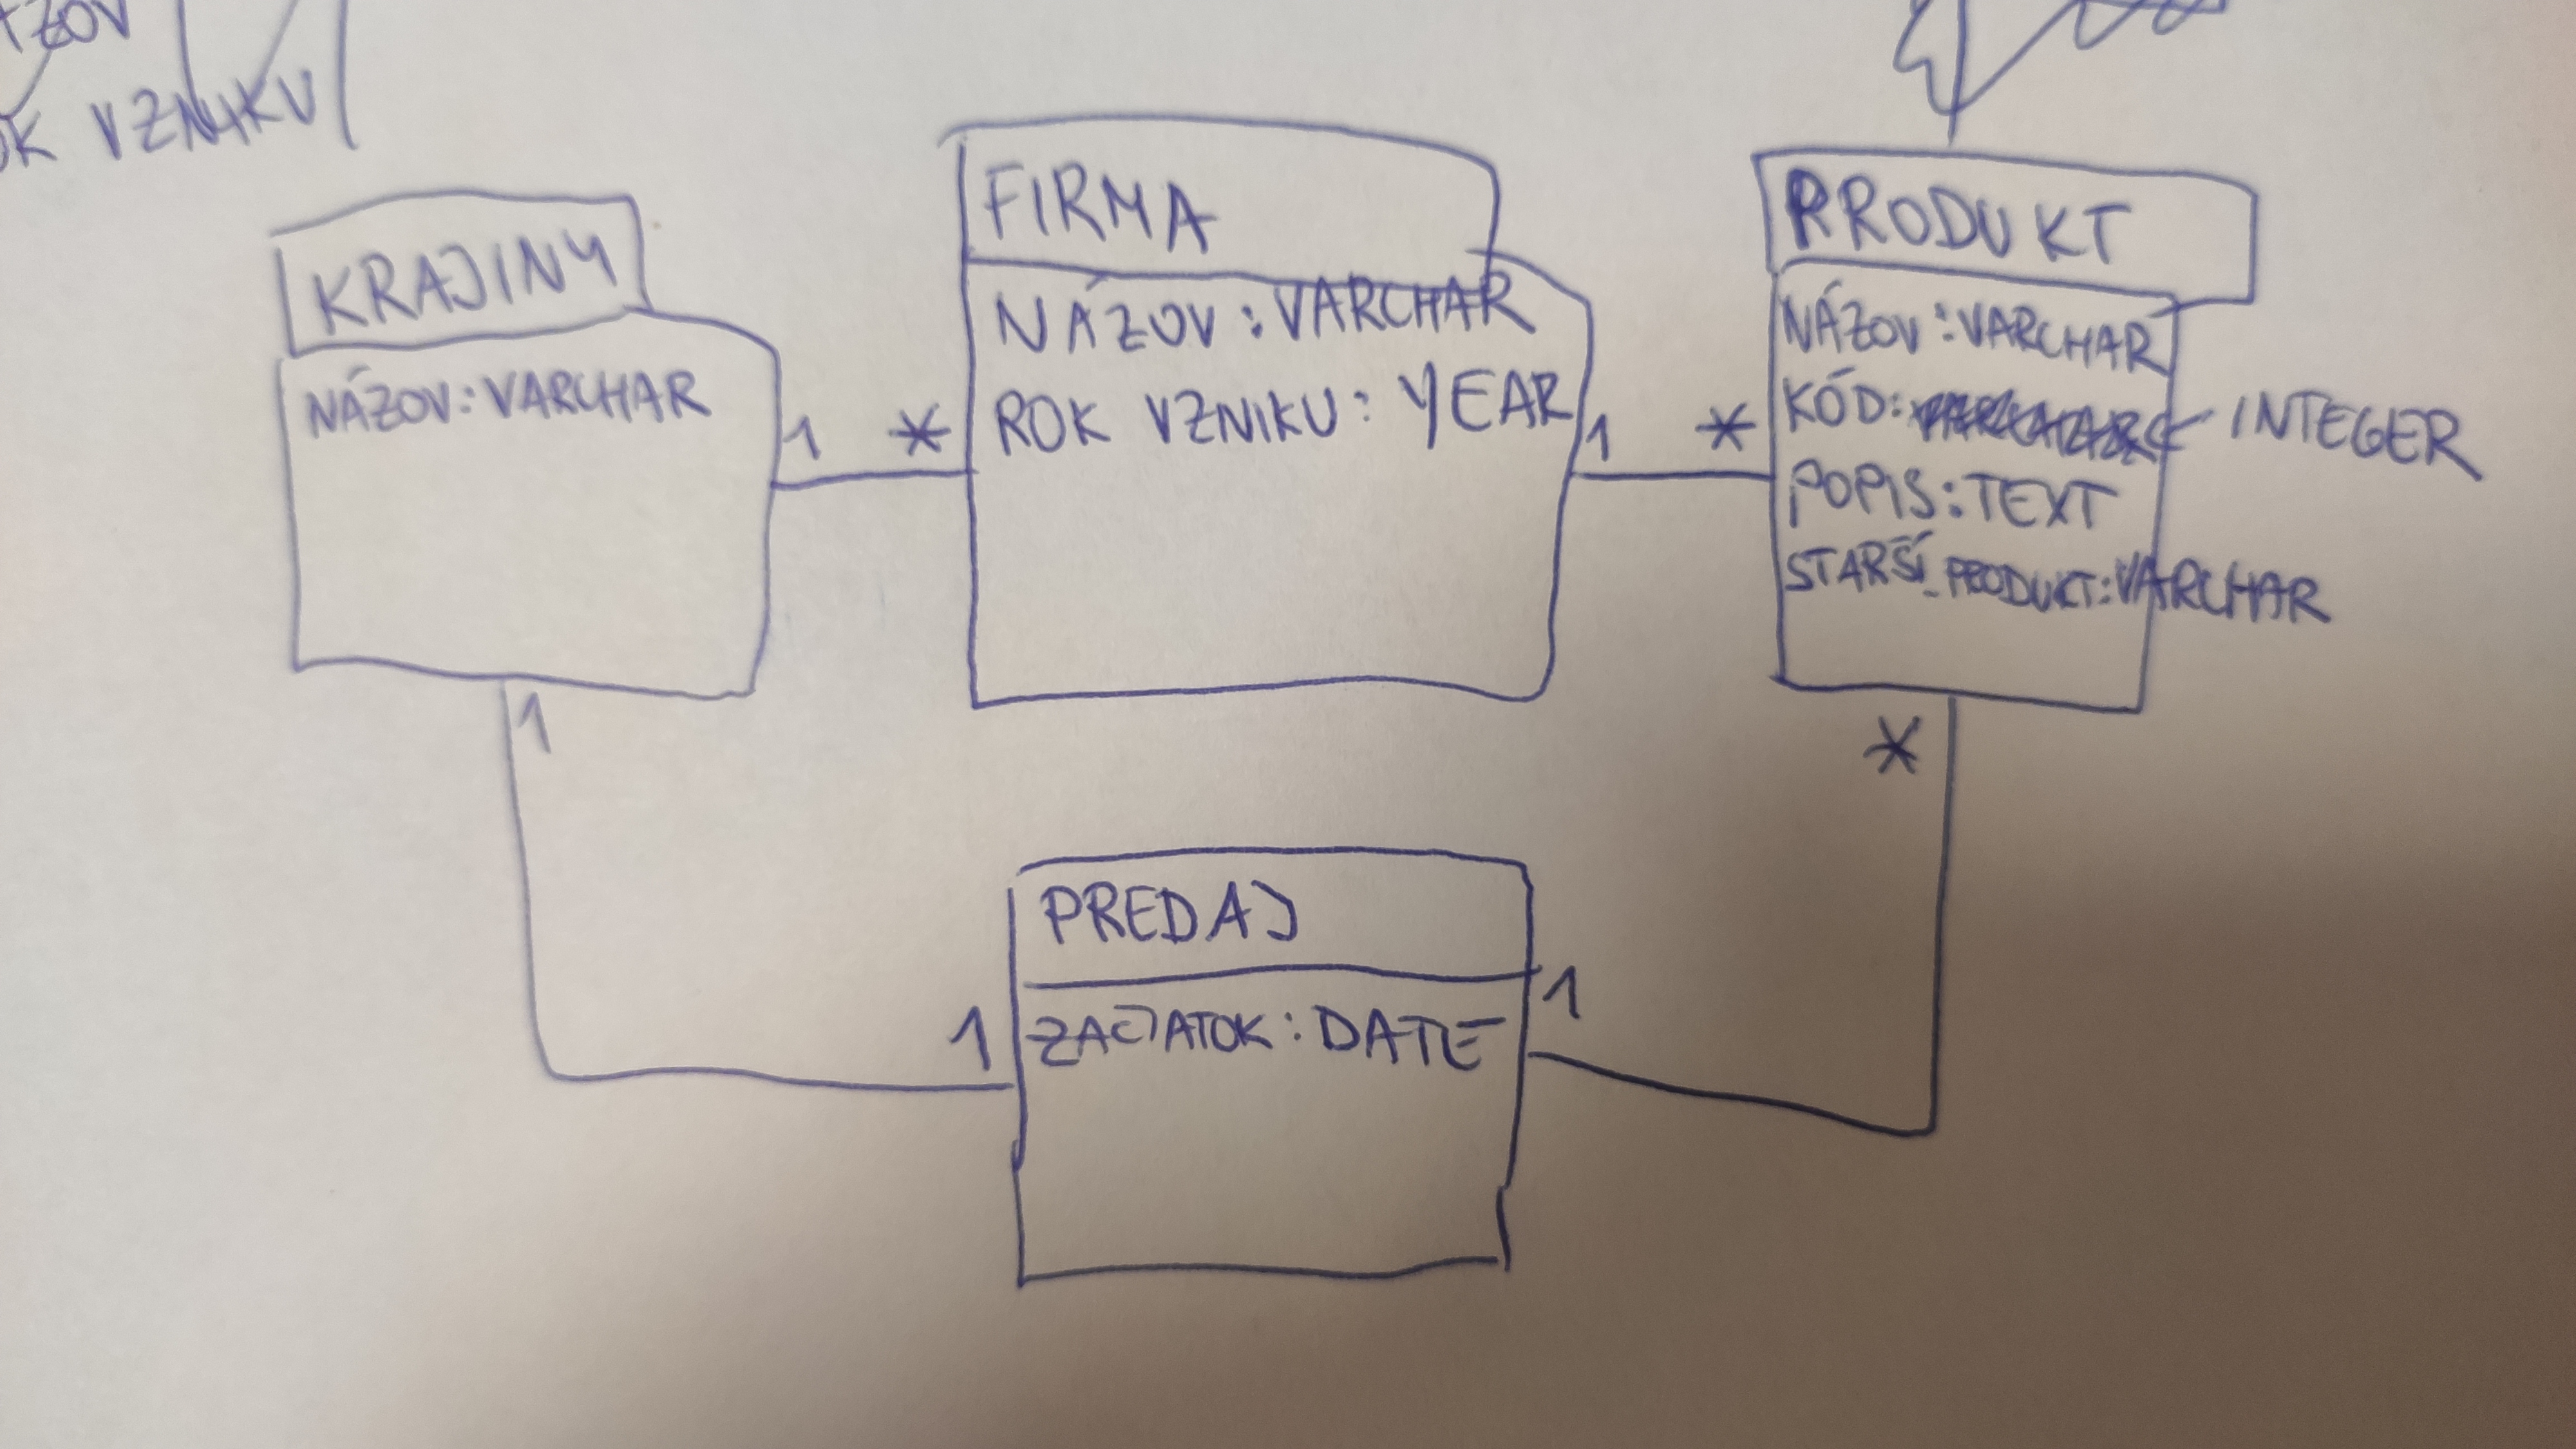 OK VZNIKU
KRAJINY
NÁZOV: VARCHAR
1
*
FIRMA
NÁZOV: VARCHAR
ROK VZNIKU: YEAR
1
*
PRODUKT
NÁZOV: VARCHAR
KÓD: INTEGER
POPIS: TEXT
STARŠÍ_PRODUKT: VARCHAR
1
*
PREDAJ
1
1
ZAČIATOK: DATE